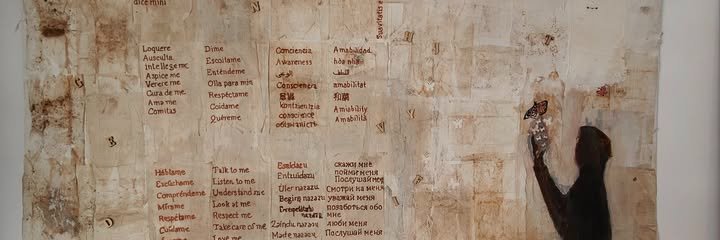 dice mihi
Suavitas
Loquere
Ausculta
intellege me
Aspice me
Verere me
Cura de me
Ama me
Comitas
Dime
Escoitame
Enténdeme
Olla para min
Respéctame
Coidame
Quéreme
Conciencia
Awareness
الوعي
Consciencia
kontzientzia
conscience
Amabilidad
hòa nhã
اللطف
amabilitat
和藹
Amiability
Amabilità
Háblame
Escúchame
Compréndeme
Mírame
Respétame
Cuídame
Talk to me
Listen to me
Understand me
Look at me
Respect me
Take care of me
Love me
Esaidazu
Entzuidazu
Uler nazazu
Begira nazazu
Errespeta
nazazu
Zaindu nazazu
Maite nazazu
скажи мне
пойми меня
Послушай меня
Смотри на меня
уважай меня
позаботься обо
мне
люби меня
Послушай меня